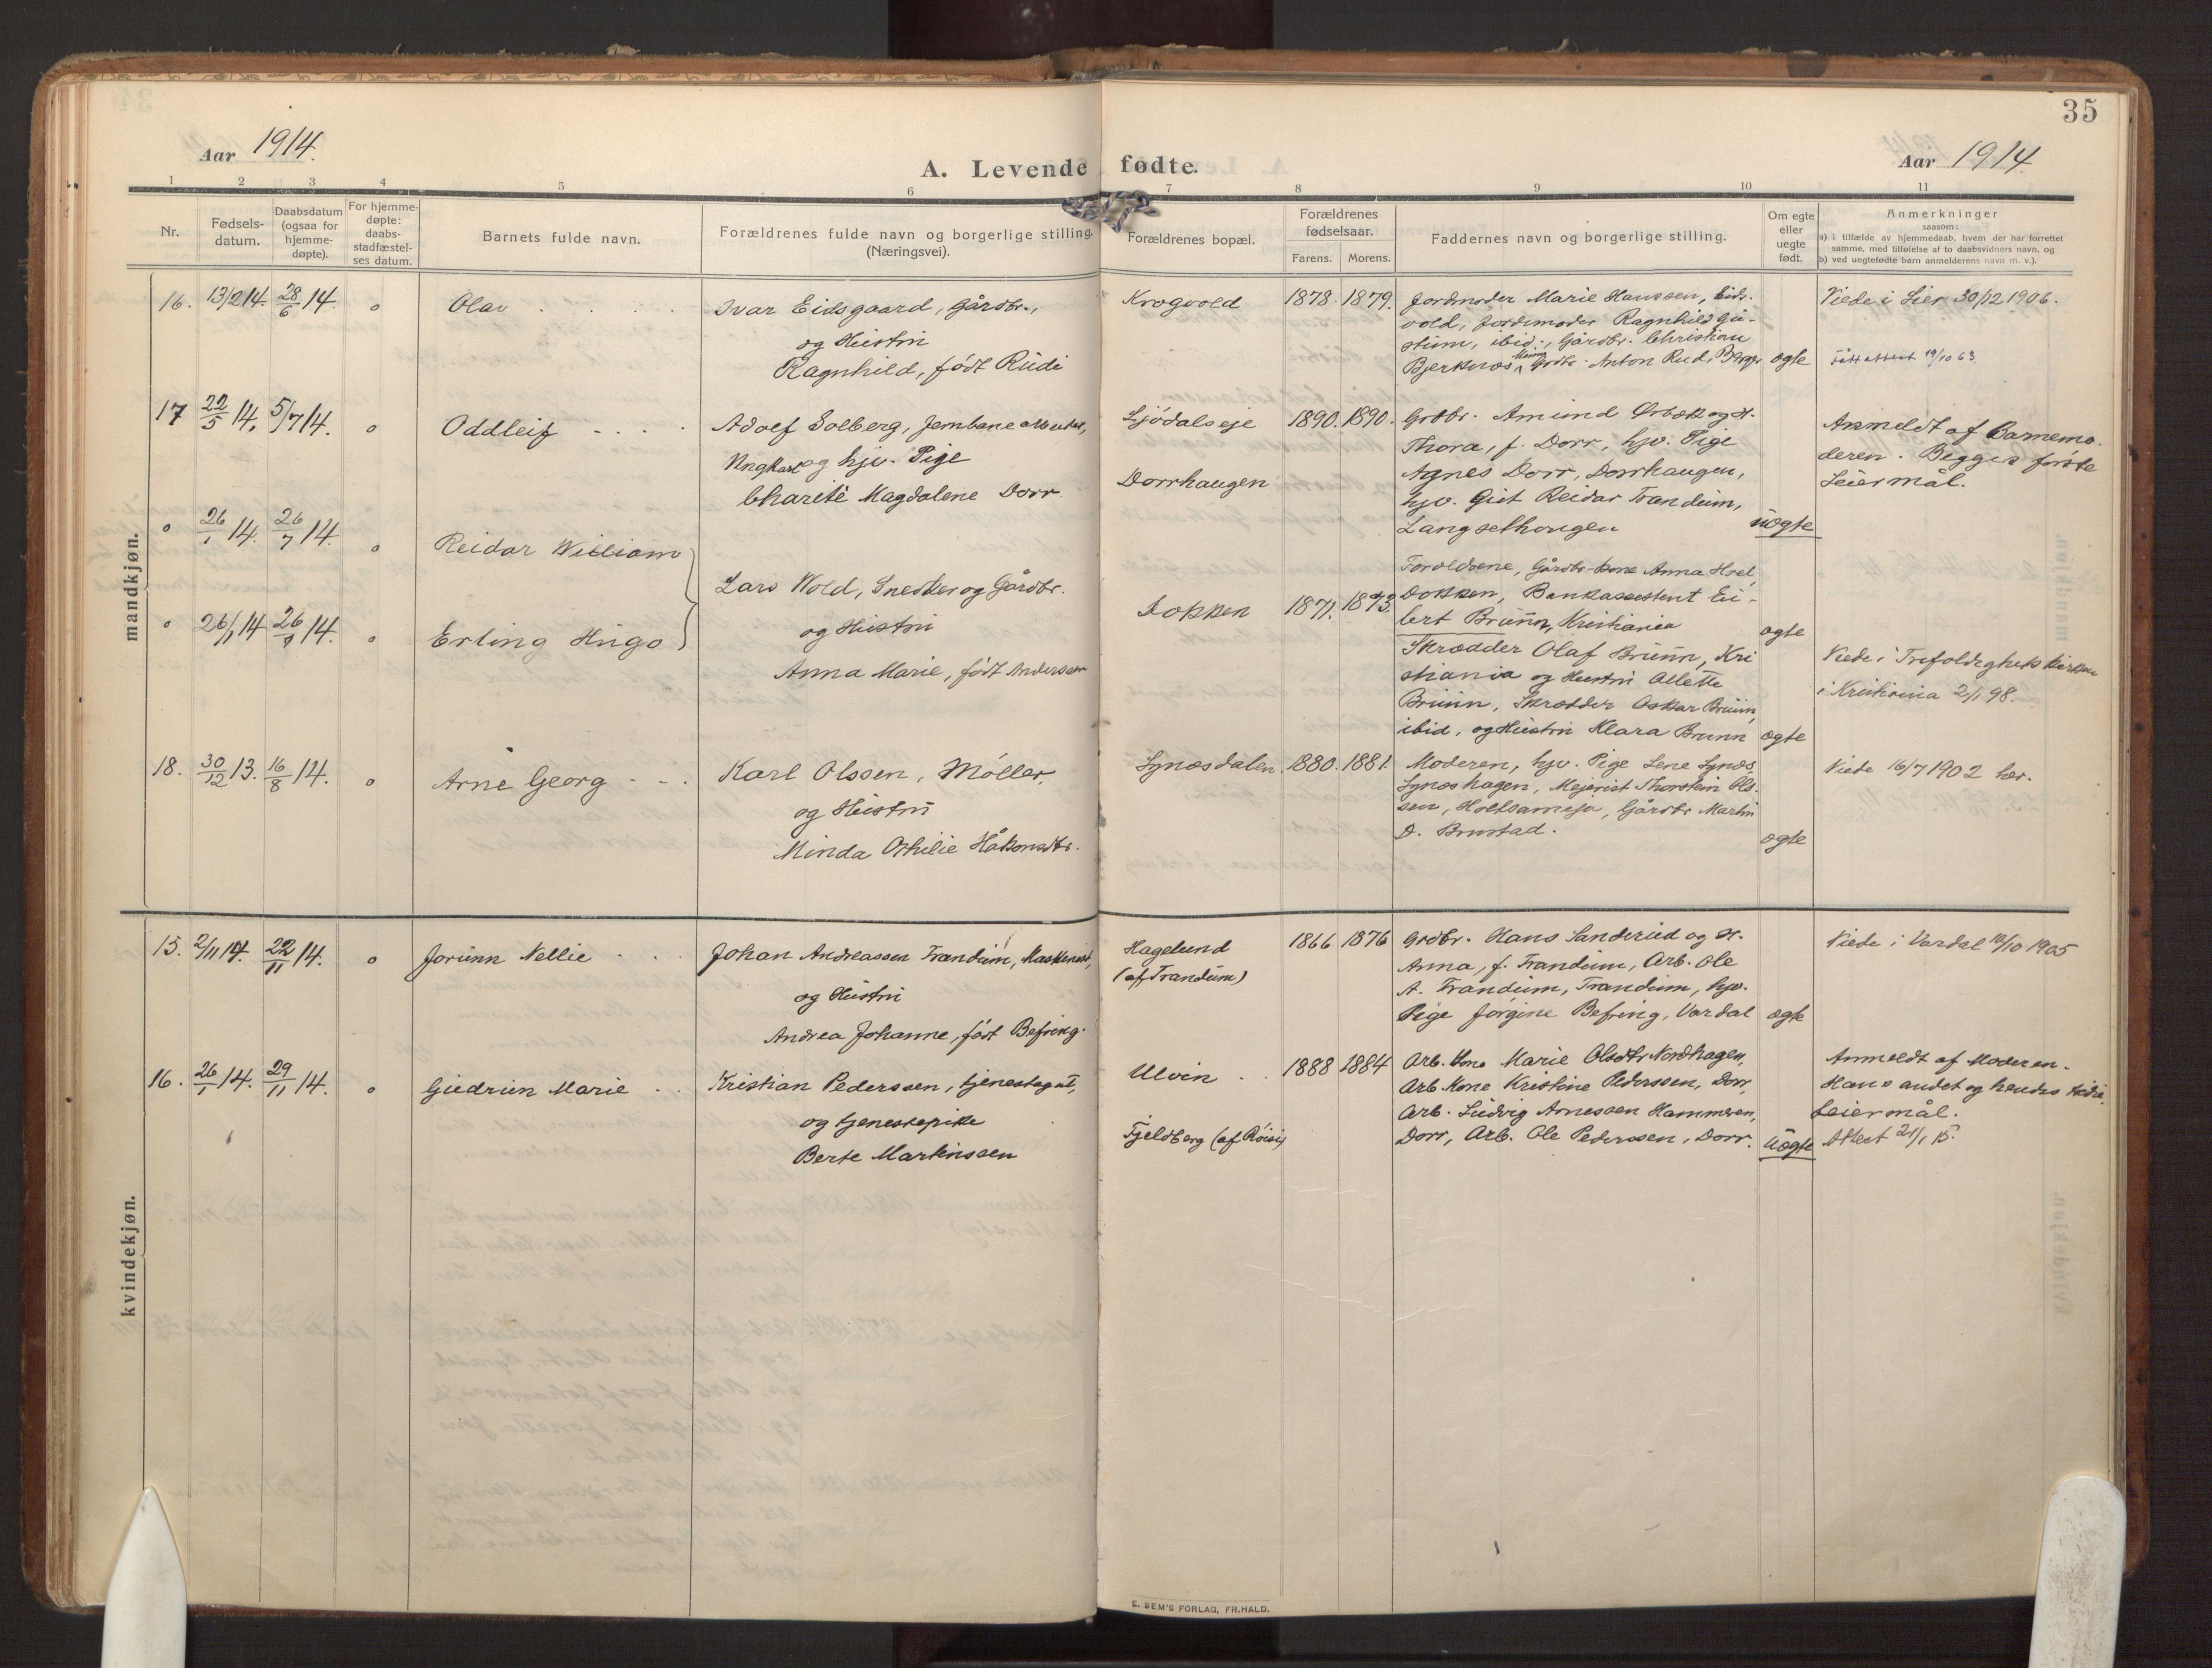 35
Aar 1914.
A. Levende fødte.
Aar 1914.
1 2 3 4 5 6 7 8 9 10 11
Nr.
Fødsels-
datum.
Daabsdatum
(ogsaa for
hjemme-
døpte).
For hjemme-
døpte:
daabs-
stadfæstel-
ses datum.
Barnets fulde navn.
Forældrenes fulde navn og borgerlige stilling.
(Næringsvei).
Forældrenes bopæl.
Forældrenes
fødselsaar.
Farens. Morens.
Faddernes navn og borgerlige stilling.
Om egte
eller
uegte
født.
Anmerkninger
saasom:
a) i tilfælde av hjemmedaab, hvem der har forrettet
samme, med tilføielse af to daabsvidners navn, og
b) ved uegtefødte barn anmelderens navn m. v.).
mandkjøn.
16. 13/2 14. 28/6 14. o
Olav
Ivar Eidsgaard, Gårdbr.,
og Hustru
Ragnhild, født Rudi
Krogvold
1878. 1879.
Jordmoder Marie Hanssen, Eids-
vold, Jordemoder Ragnhild Gu-
stum, ibid., Gårdbr. Christian
Bjerknæs, Grdbr. Anton Rud,
ægte
Viede i Lier 30/12 1906.
19/10 63.
17 22/5 14. 5/7 14. o
Oddleif
Adolf Solberg, Jernbanearbeider,
Ungkarl og hjv. Pige
Charite Magdalene Dorr
Ljødalseje
Dorrhaugen
1890. 1890.
Grdbr. Amund Ørbæk og H.
Thora, f. Dorr, hjv. Pige
Agnes Dorr, Dorrhaugen,
hjv. Gut Reidar Trandum,
Langsethougen
uægte
Anmeldt af Barnemo-
deren. Begges første
Leiermål.
o 26/1 14. 26/7 14. o
Reidar William
o 26/1 14 26/7 14. o
Erling Hugo
Lars Wold, Snedker og Gårdbr.
og Hustru
Anna Marie, født Anderssen
Dokken
1871. 1873.
Forældrene, Gårdbr. kone Anna Hoel
Dokken, Bankassistent Ei-
bert Brunn, Kristiania
ægte
Skrædder Olaf Brunn, Kri
stiania og Hustru Allette
Brunn, Skrædder Oskar Brunn,
ibid, og Hustru Klara Brunn
ægte
Viede i Trefoldighetskirken
i Kristiania 2/1 98.
18. 30/12 13. 16/8 14. o
Arne Georg
Karl Olssen, Møller,
og Hustru
Minda Othilie Håkonsdtr.
Lynæsdalen
1880. 1881.
Moderen, hjv. Pige Lene Lynæs,
Lynæshagen, Mejerist Thorstein Ols-
sen, Holtsameja, Gårdbr Martin
D. Brustad.
ægte
Viede 16/7 1902 her.
kvindekjøn.
15. 2/11 14. 22/11 14. o
Jorunn Nellie
Johan Andreassen Trandum, Maskinist,
og Hustru
Andrea Johanne, født Befring.
Hagelund
(af Trandum)
1866. 1876
Grdbr. Hans Sanderud og H.
Anna, f. Trandum, Arb. Ole
A. Trandum, Trandum, hjv.
Pige Jørgine Befring, Vardal
ægte
Viede i Vardal 18/10 1905
16. 26/1 14. 29/11 14. o
Gudrun Marie
Kristian Pederssen, tjenestegut,
og tjenestepike
Berte Martinssen
Ulvin
Fjeldberg (af Røisi)
1888 1884
Arb. Kone Marie Olsdtr Nordhagen,
Arb. Kone Kristine Pederssen, Dorr,
Arb. Ludvig Arnessen Hammeren,
Dorr, Arb. Ole Pederssen, Dorr.
uægte
Anmeldt af Moderen.
Hans andet og hendes tredie
Leiermål.
Attest 21/1 15.
E. SEM'S FORLAG, FR.HALD.